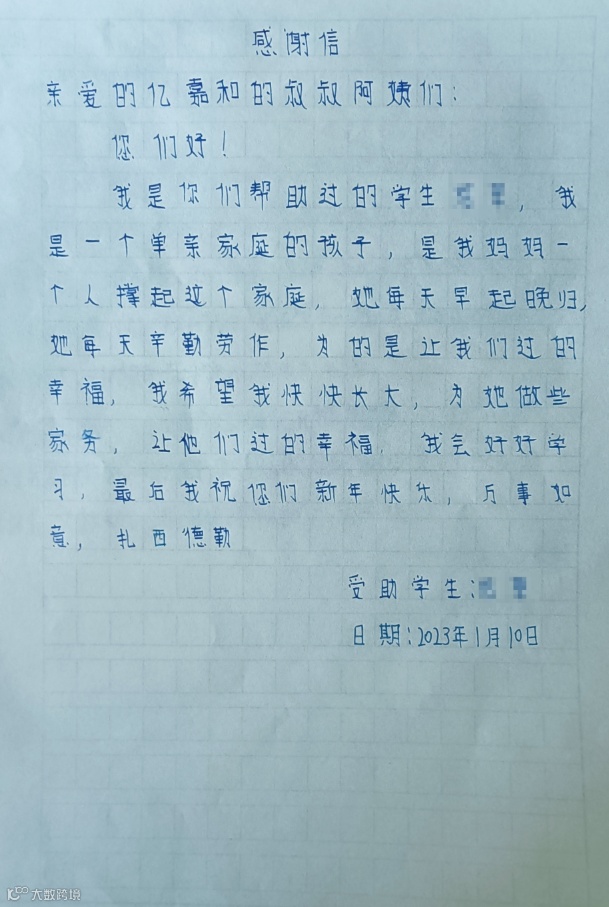 感谢信
亲爱的亿嘉和的叔叔阿姨们：
您们好！
我是你们帮助过的学生，我
是一个单亲家庭的孩子，是我妈妈一
个人撑起这个家庭，她每天早起晚归，
她每天辛勤劳作，为的是让我们过的
幸福，我希望我快快长大，为她做些
家务，让他们过的幸福，我会好好学
习，最后我祝您们新年快乐，万事如
意，扎西德勒
受助学生：
日期：2023年1月10日
大数跨境